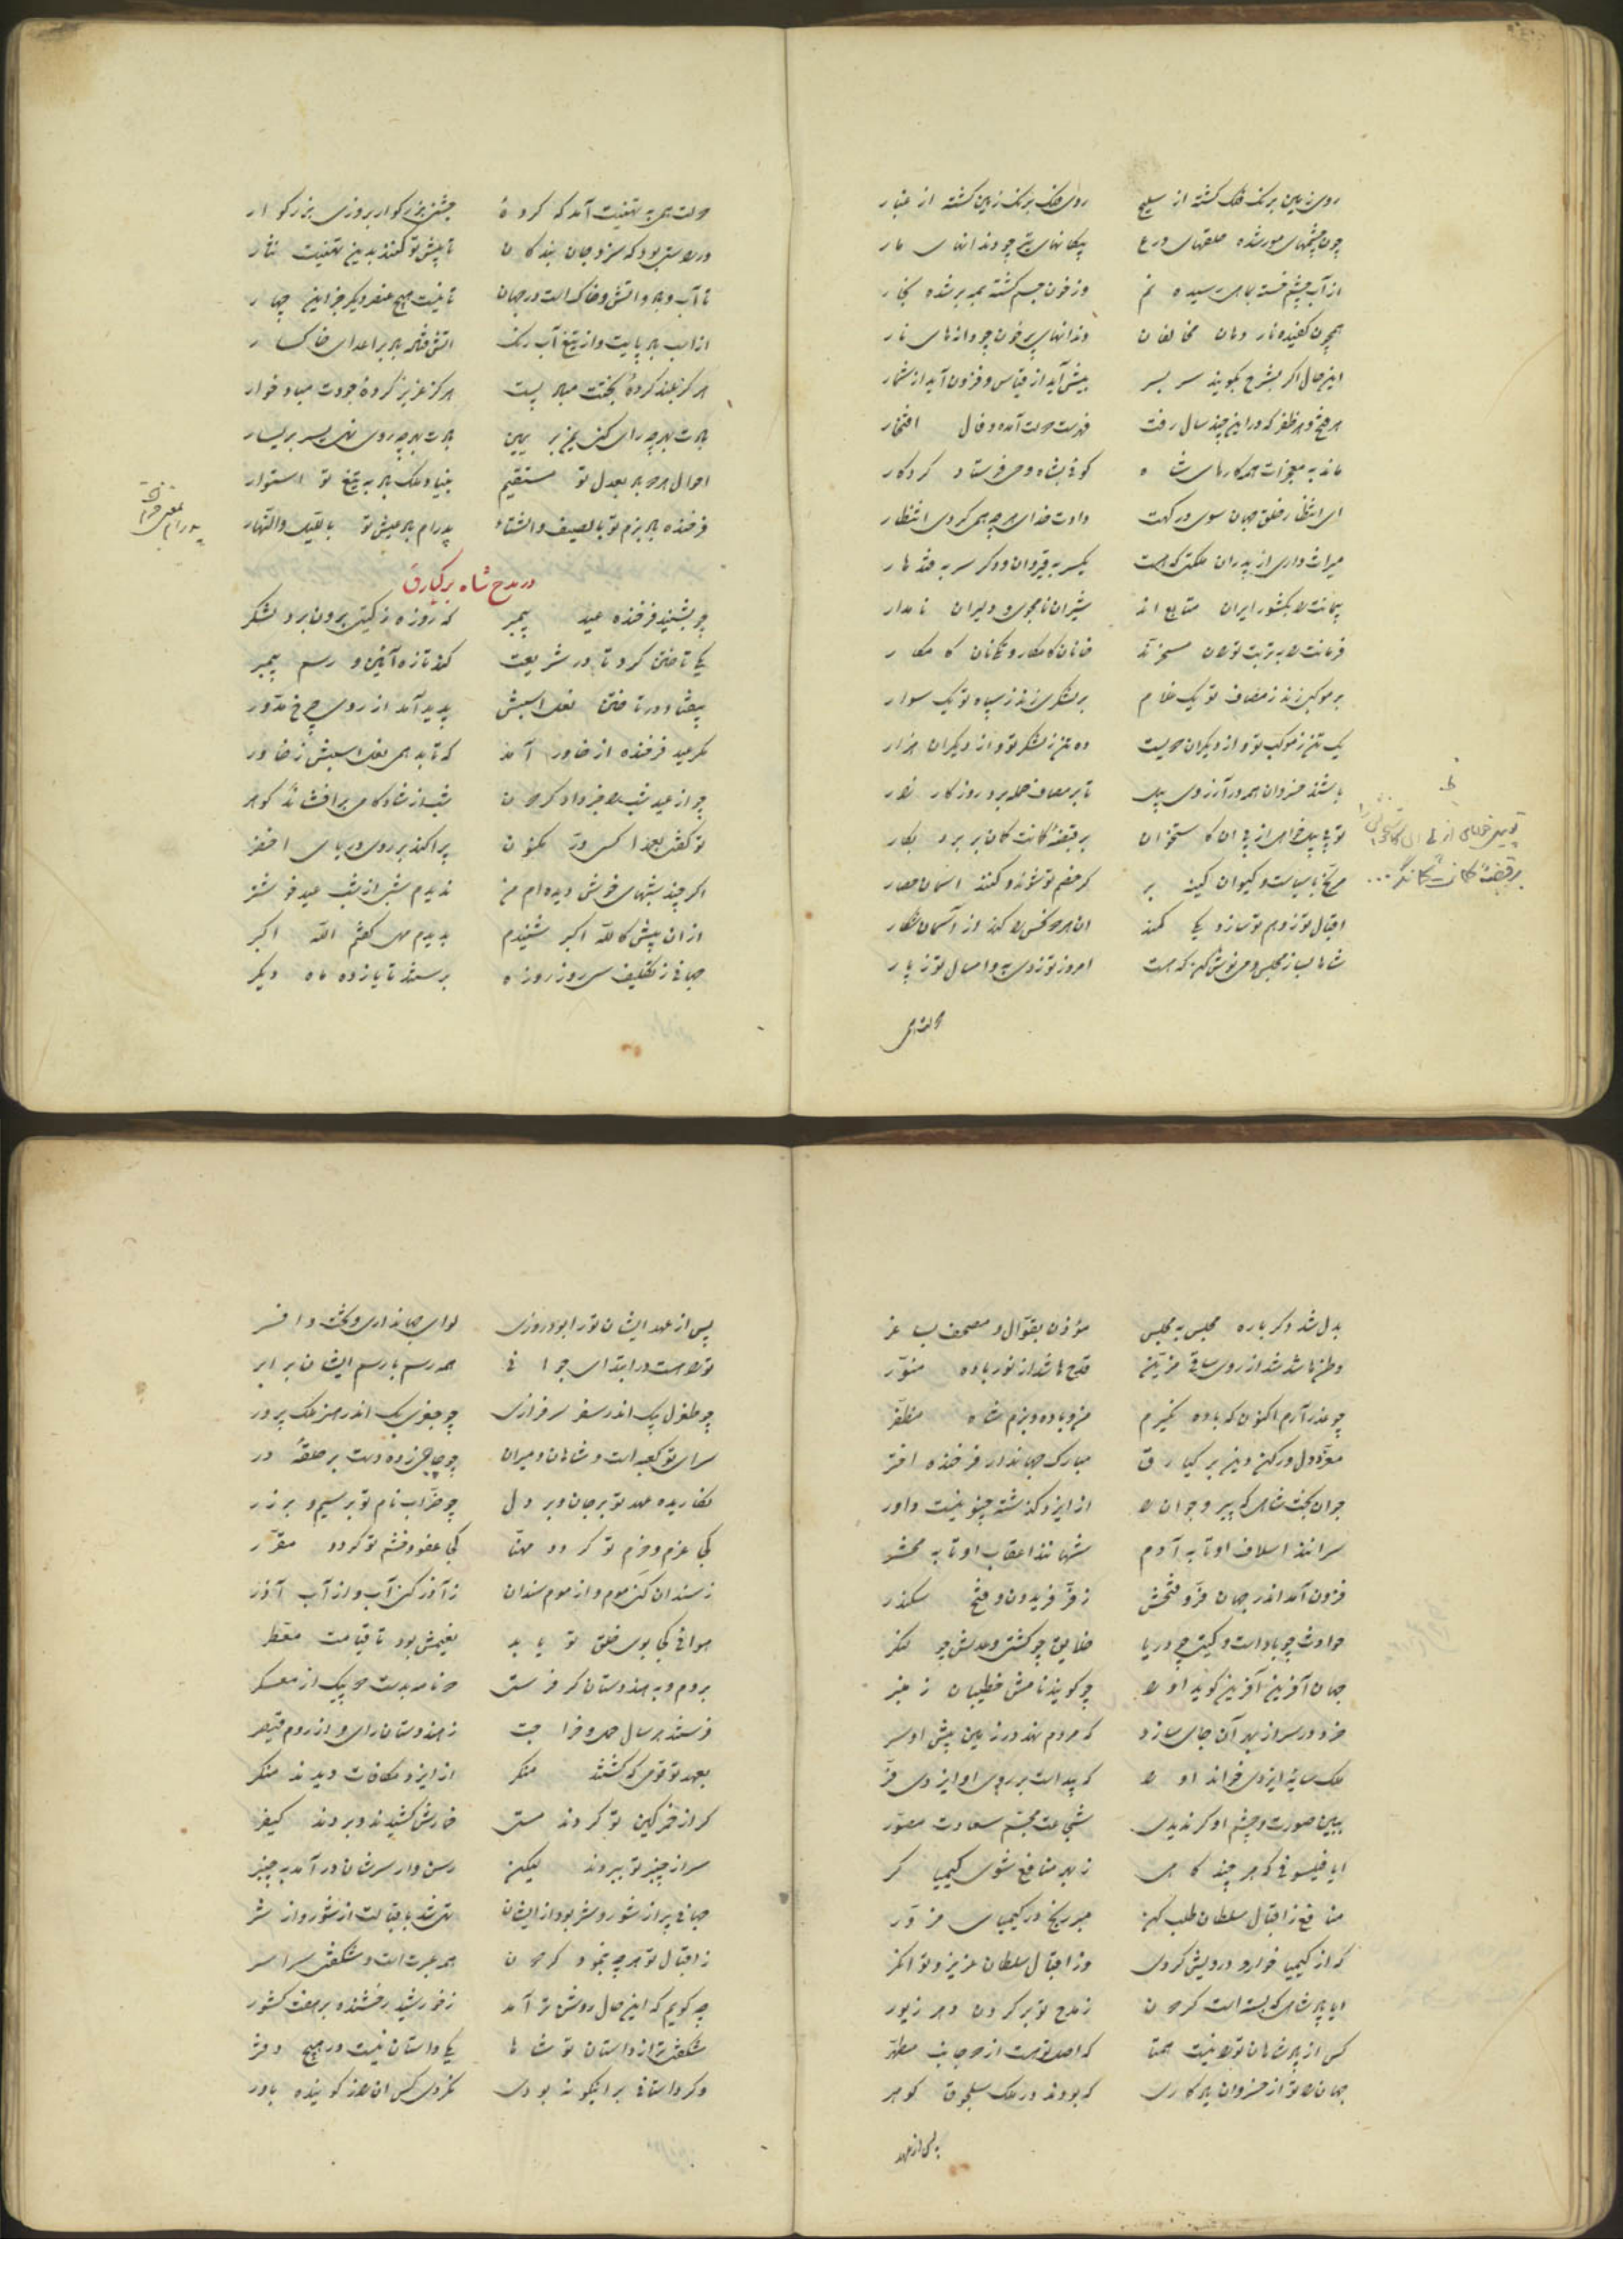 روی زمین برنک فلک کشته از سلیح روی فلک برنک زمین کشته از غبار
چون چشمهای مور شده حلقهای درع پیکانهای تیر چو دندانهای مار
از آب چشم خسته بماهی رسیده نم وز خون جسم کشته بمه بر شده بخار
همچون کفیده نار دهان مخالفان دندانهای پرخون چو دانهای نار
این حال اکر بشرح بکویند سر بسر بیش آید از قیاس و فزون آید از شمار
هر فتح و هر ظفر که در این چند سال رفت فهرست دولت آمد و فال افتخار
ماند به معجزات همه کارهای شاه کوئی بشاه وحی فرستاد کردکار
ای انتظار خلق جهان سوی درکهت دادت خدای هر چه همی کردی انتظار
میراث داری از پدران ملکتی که هست یکسر به قیروان و دکر سر به قندهار
پیمانت را بکشور ایران متابع اند شیران نامجوی و دلیران نامدار
فرمانت را به تربت توران مسخرند خانان کامکار و تکینان کامکار
بر موکبی زند ز مصاف تو یک غلام بر لشکری زند ز سپاه تو یک سوار
یک تن ز موکب تو و از دیکران دویست ده تن ز لشکر تو و از دیکران هزار
باشند خسروان همه در آرزوی پیل تا بر مصاف حمله برد روزکار زار
تو پی پیل خواهی از پی آن کاستخوان بر قبضهٔ کمانت کمان‌کر برد بکار
مریخ با سیاست و کیوان کینه‌بر کر خصم تو شوند و کنند آسمان حصار
اقبال تو ز وهم تو سازد یکی کمند آن هر دو نحس را کند از آسمان شکار
شاها بساز مجلس و می نوش کن که هست امروز تو ز دی به و امسال تو ز پار
دولت همی
دولت همی به تهنیت آمد که کردهٔ جشنی بزرکوار بروزی بزرکوار
در دست بود که سر و جان بندکان تا پیش تو کنند بدین تهنیت نثار
تا آب و باد و آتش و خاک است در جهان تا نیست هیچ عنصر دیکر جز این چهار
از اسب باد پایت و از تیغ آب رنک آتش فشان باد بر اعدای خاکسار
هرکز بلند کردهٔ بختت مباد پست هرکز عزیز کردهٔ جودت مباد خوار
بادت بهر چه رای کنی یمن بر یمین بادت بهر چه روی نهی یسر بر یسار
احوال دهر باد بعدل تو مستقیم بنیاد ملک باد به تیغ تو استوار
فرخنده باد بزم تو بالصیف والشتاء پدرام باد عیش تو باللیل والنهار
در مدح شاه برکیارق
چو بشنید فرخنده عید پیمبر که روزه ز کیتی برون برد لشکر
یکی تاختن کرد تا در شریعت کند تازه آئین و رسم پیمبر
بیفتاد در تاختن نعل اسبش پدید آمد از روی چرخ مدور
مکر عید فرخنده از خاور آمد که تابد همی نعل اسبش ز خاور
چو از عید شب را خبر داد کردون شب از شادکامی برافشاند کوهر
تو کفتی بعمدا کسی در مکنون پراکند بر روی دریای اخضر
اکر چند شبهای خوش دیده‌ام من ندیدم شبی از شب عید خوشتر
از آن پیش کالله اکبر شنیدم بدیدم مهی کفتم الله اکبر
جهانی ز تکلیف سی روز روزه برستند تا یازده ماه دیکر
بدل شد دکر باره مجلس به مجلس مؤذن بقوال و مصحف بساغر
وطن‌ها شد از روی ساقی مزین قدح‌ها شد از نور باده منور
چو عذر آرم اکنون که باده نکیرم من و باده و بزم شاه مظفر
معز دول رکن دین برکیارق مبارک جهاندار فرخنده اختر
جوان بخت شاهی که پیر و جوان را از ایزد کذشته چنو نیست داور
سرانند اسلاف او تا به آدم شهانند اعقاب او تا به محشر
فزون آمد اندر جهان فر و فتحش ز فر فریدون و فتح سکندر
حوادث چو بادست و کیتی چو دریا خلایق چو کشتی و عدلش چو لنکر
جهان آفرین آفرین کوید او را چو کویند نامش خطیبان ز منبر
خرد در سر از بهر آن جای سازد که مردم نهد در زمین پیش او سر
ملک سایهٔ ایزدی خواند او را که پیداست بر روی او ایزدی فر
ببین صورت و چشم او کر ندیدی شجاعت مجسم سعادت مصور
ایا فیلسوفی که هر چند کاهی ز بهر منافع شوی کیمیاکر
منافع ز اقبال سلطان طلب کن مبر رنج در کیمیای مزور
که از کیمیا خوار و درویش کردی وز اقبال سلطان عزیز و توانکر
ایا پادشاهی که بسته است کردون ز مدح تو بر کردن دهر زیور
کس از پادشاهان تو را نیست همتا که اصل تو هست از دو جانب مطهر
جهان را تو از خسروان یادکاری که بودند در ملک سلجوق کوهر
پس از عهد
پس از عهد ایشان تو را بود روزی لوای جهانداری و تخت و افسر
تو را هست در ابتدای جوانی همه رسم با رسم ایشان برابر
چو طغرل بک اندر سفر سرفرازی چو جغری بک اندر حضر ملک پرور
سرای تو کعبه است و شاهان و میران چو حاجی زده دست بر حلقهٔ در
نکاریده عهد تو بر جان و بر دل چو ضراب نام تو بر سیم و بر زر
کجا عزم و حزم تو کردد مهنا کجا عفو و خشم تو کردد مقرر
ز سندان کنی موم و از موم سندان ز آذر کنی آب و از آب آذر
هوائی کجا بوی خلق تو یابد نعیمش بود تا قیامت معطر
بروم و به هندوستان کر فرستی دو نامه بدست دو پیک از معسکر
فرستند هر سال حمل و خراجت ز هندوستان رای و از روم قیصر
بعهد تو قومی که کشتند منکر از ایزد مکافات دیدند منکر
کر از خمر کین تو کردند مستی خمارش کشیدند و بردند کیفر
سر از چنبر تو ببردند لیکن رسن وار سرشان درآمد به چنبر
جهانی پر از شور و شر بود از ایشان تهی شد باقبالت از شور و از شر
ز اقبال تو هر چه بنمود کردون همه عبرت است و شکفتی سراسر
چه کویم که این حال روشن‌تر آمد ز خورشید رخشنده بر هفت کشور
شکفتی‌تر از داستان تو شاها یکی داستان نیست در هیچ دفتر
وکر داستانی بر اینکونه بودی نکردی کس آن را ز کوینده باور